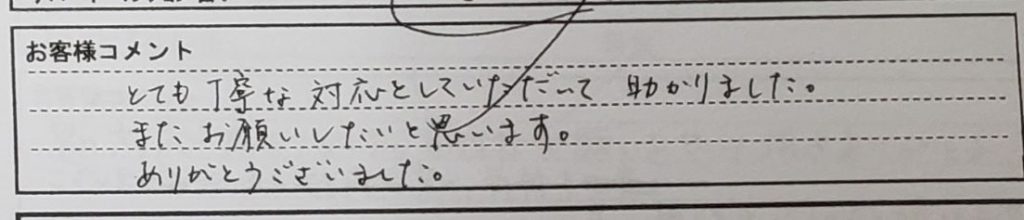 お客様コメント
とても丁寧な対応をしていただいて 助かりました。
またお願いしたいと思います。
ありがとうございました。